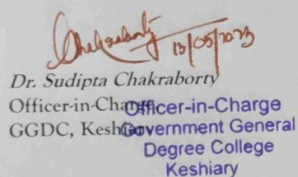 Chakraborty
13/05/2023
Dr. Sudipta Chakraborty
Officer-in-Charge
GGDC, Keshiary
Officer-in-Charge
Government General
Degree College
Keshiary